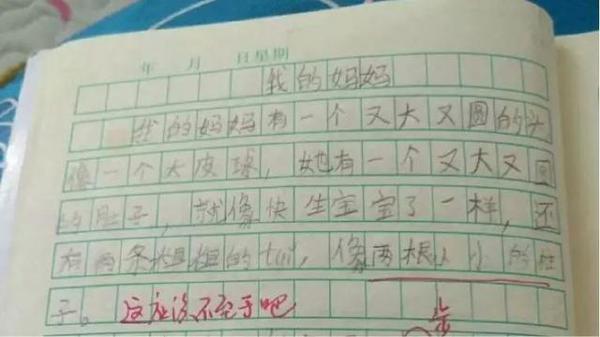 年 月 日星期
我的妈妈
我的妈妈有一个又大又圆的头
像一个大皮球，她有一个又大又圆
的肚子，就像快生宝宝了一样，还
有两条粗粗的tui，像两根小小的柱
子。这应该不至于吧